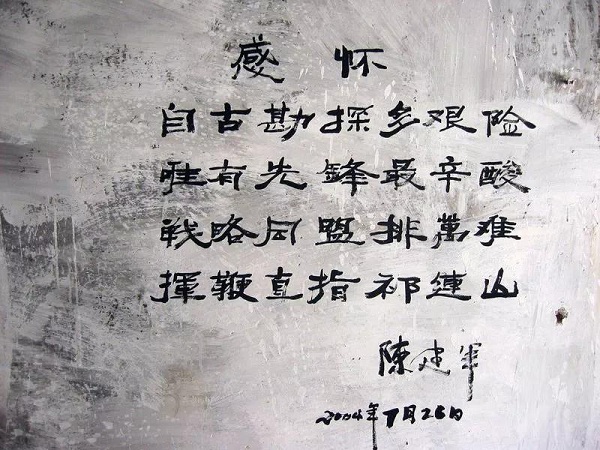 感怀
自古勘探多艰险
唯有先鋒最辛酸
戦略同盟排萬难
揮鞭直指祁連山
陳建軍
2004年7月26日